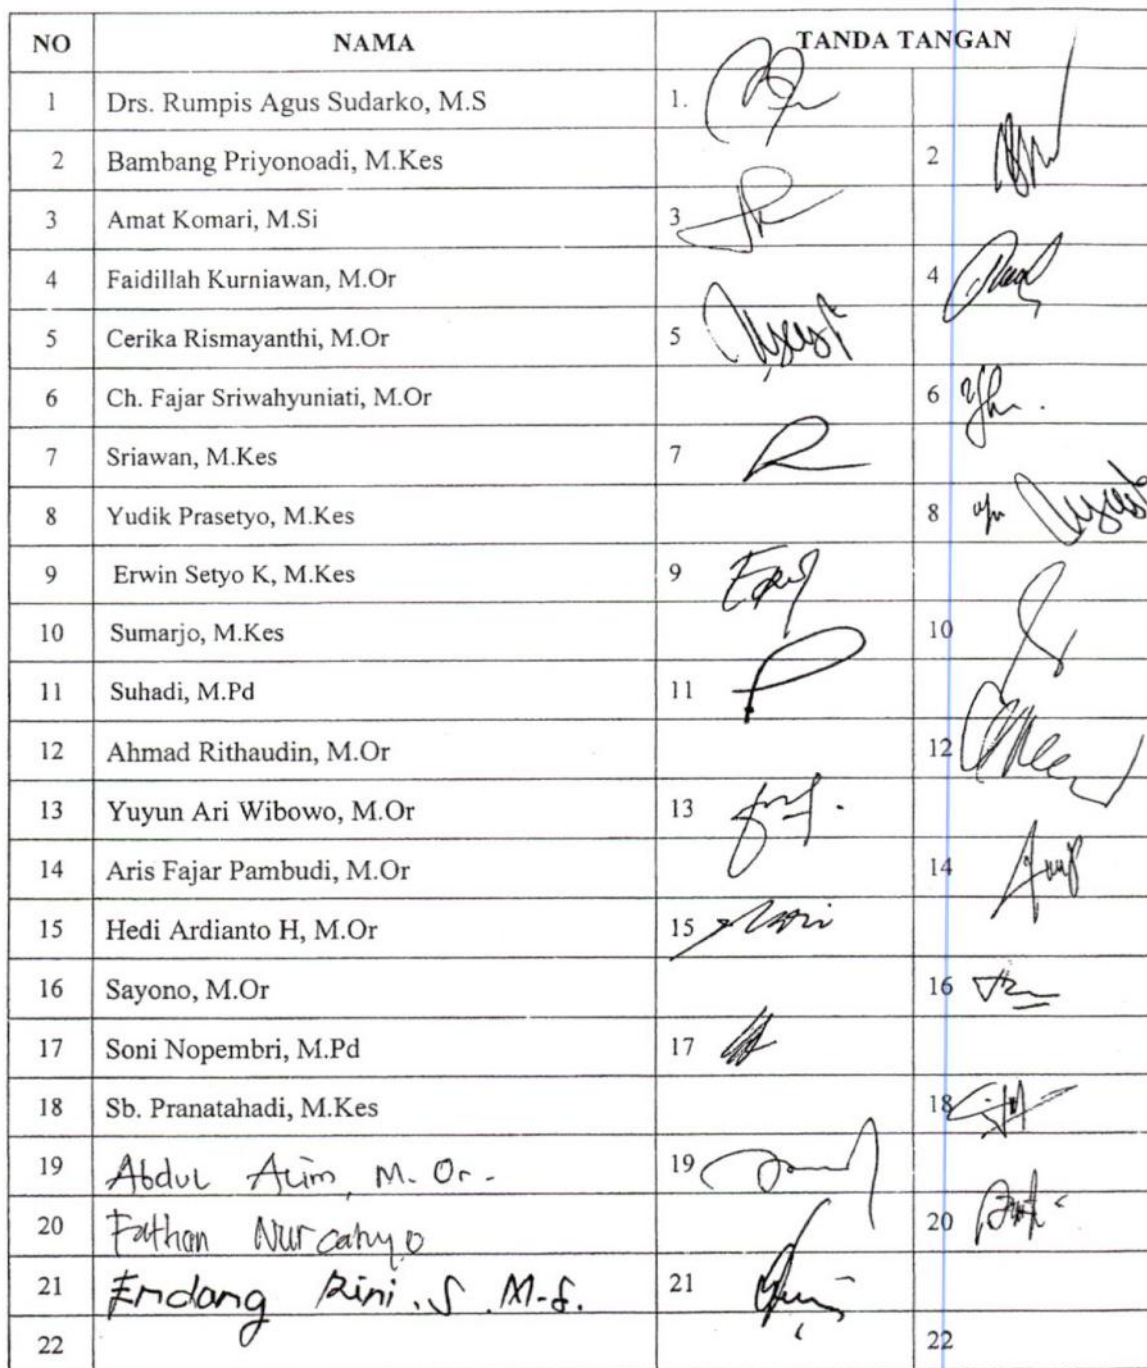 NO NAMA TANDA TANGAN
1 Drs. Rumpis Agus Sudarko, M.S 1.
2 Bambang Priyonoadi, M.Kes 2
3 Amat Komari, M.Si 3
4 Faidillah Kurniawan, M.Or 4
5 Cerika Rismayanthi, M.Or 5
6 Ch. Fajar Sriwahyuniati, M.Or 6
7 Sriawan, M.Kes 7
8 Yudik Prasetyo, M.Kes 8
9 Erwin Setyo K, M.Kes 9
10 Sumarjo, M.Kes 10
11 Suhadi, M.Pd 11
12 Ahmad Rithaudin, M.Or 12
13 Yuyun Ari Wibowo, M.Or 13
14 Aris Fajar Pambudi, M.Or 14
15 Hedi Ardianto H, M.Or 15
16 Sayono, M.Or 16
17 Soni Nopembri, M.Pd 17
18 Sb. Pranatahadi, M.Kes 18
19 Abdul Alim, M.Or. 19
20 Fathan Nurcahyo 20
21 Endang Rini. S. M.S. 21
22 22